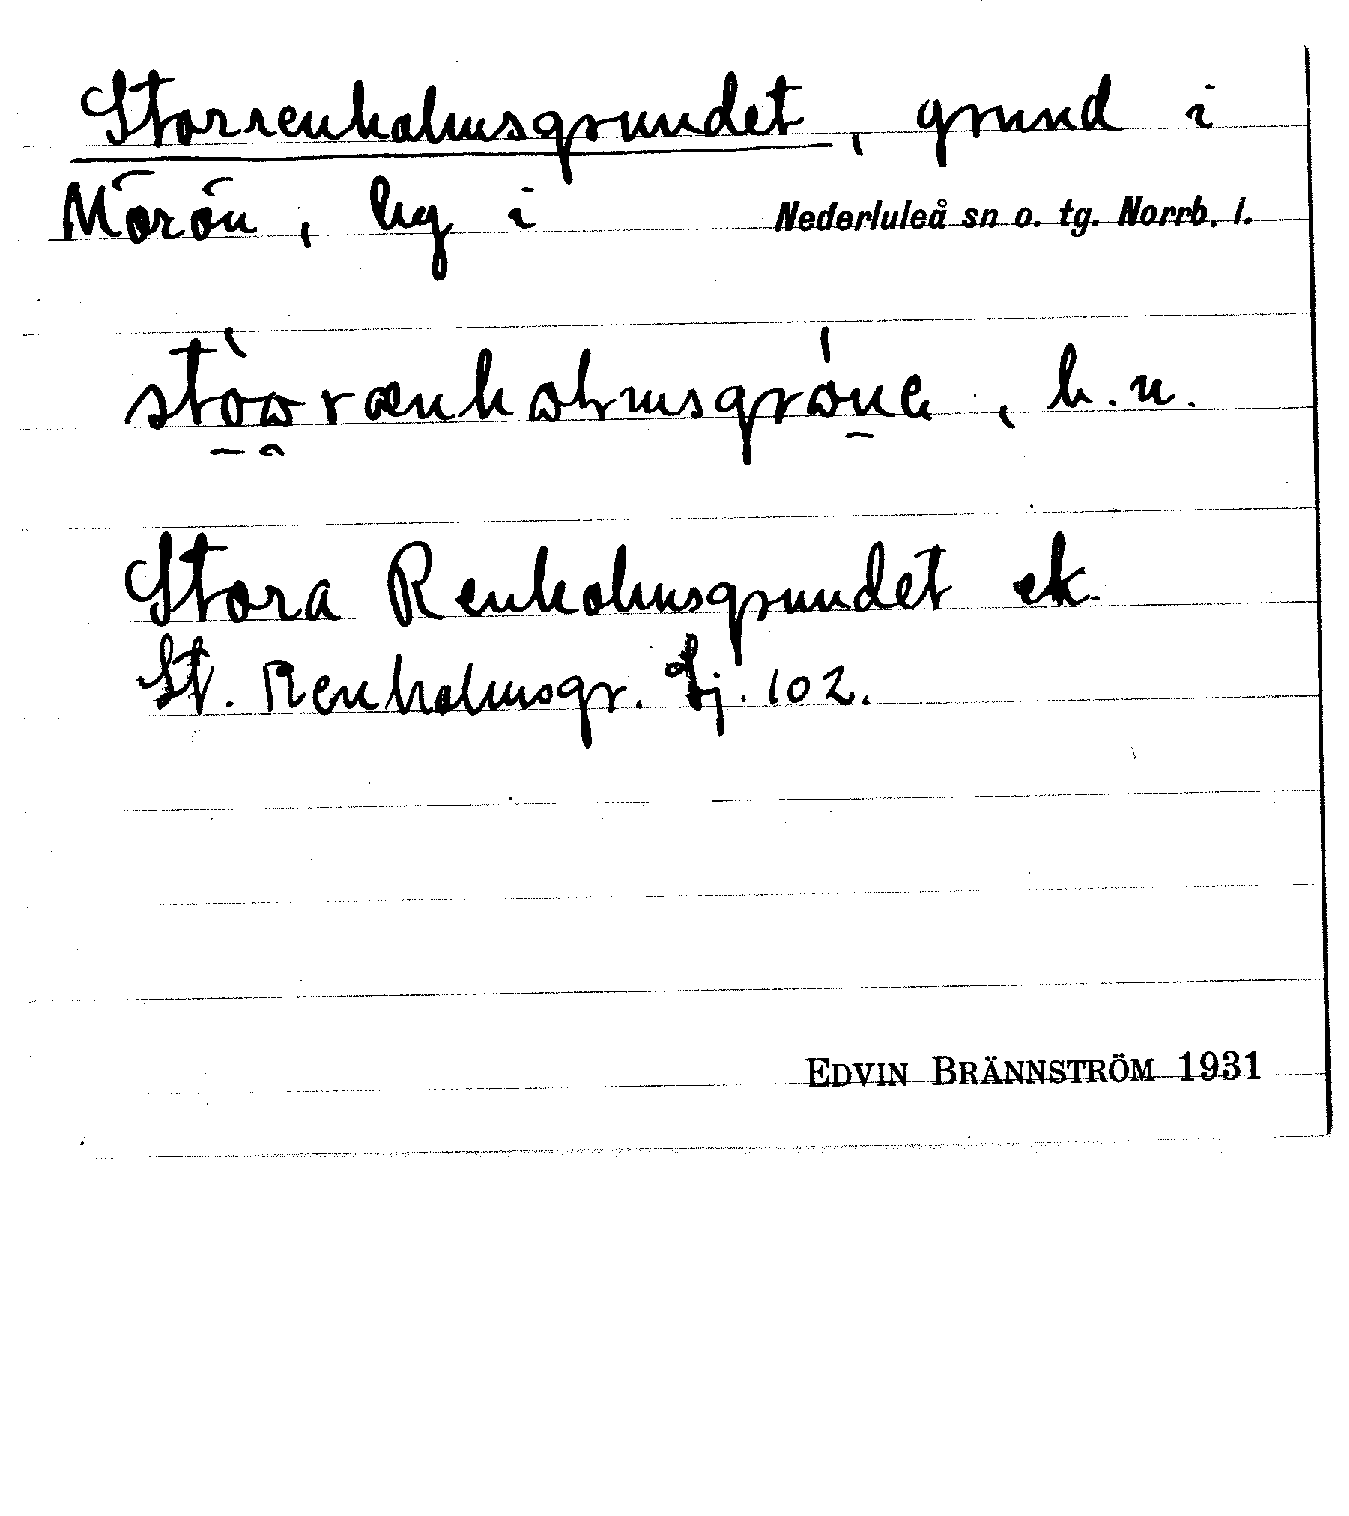 Storrenholmsgrundet, grund i
Mörön, by i Nederluleå sn o. tg. Norrb. l.
b. n.
Stora Renholmsgrundet ek
St. Renholmsgr. Sj. 102.
EDVIN BRÄNNSTRÖM 1931